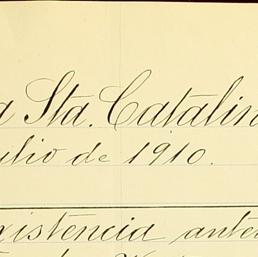 a Sta. Catalin
ulio de 1910.
xistencia anter